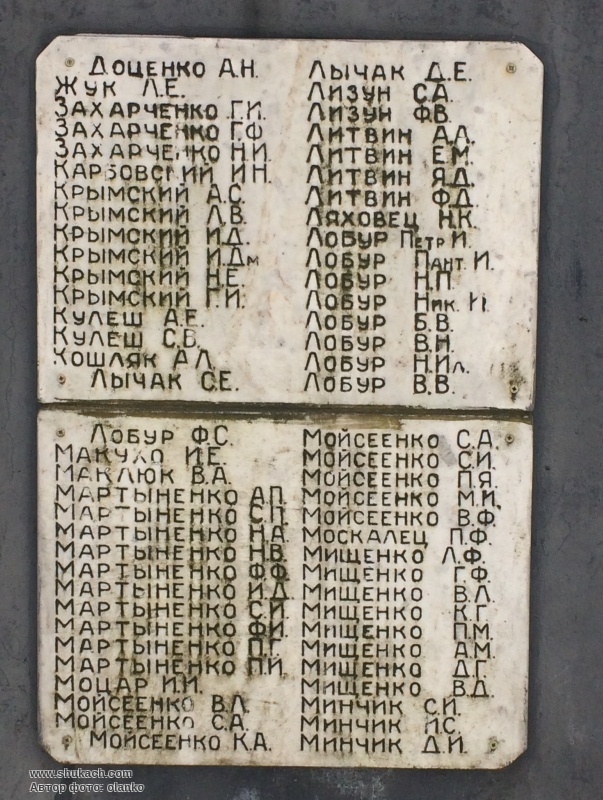 ДОЦЕНКО А.Н.
ЖУК Л.Е.
ЗАХАРЧЕНКО Г.И.
ЗАХАРЧЕНКО Г.Ф.
ЗАХАРЧЕНКО Н.И.
КАРБОВСКИЙ И.Н.
КРЫМСКИЙ А.С.
КРЫМСКИЙ Л.В.
КРЫМСКИЙ И.Д.
КРЫМСКИЙ И.Дм
КРЫМСКИЙ Н.Е.
КРЫМСКИЙ Г.И.
КУЛЕШ А.Е.
КУЛЕШ С.В.
КОШЛЯК А.Л.
ЛЫЧАК С.Е.
ЛЫЧАК Д.Е.
ЛИЗУН С.А.
ЛИЗУН Ф.В.
ЛИТВИН А.Л.
ЛИТВИН Е.М.
ЛИТВИН Я.Д.
ЛИТВИН Ф.Д.
ЛЯХОВЕЦ Н.К.
ЛОБУР ПЕТР И.
ЛОБУР ПАНТ. И.
ЛОБУР Н.П.
ЛОБУР НИК. И.
ЛОБУР Б.В.
ЛОБУР В.Н.
ЛОБУР Н.Ил.
ЛОБУР В.В.
ЛОБУР Ф.С.
МАКУХО И.Е.
МАКЛЮК В.А.
МАРТЫНЕНКО А.П.
МАРТЫНЕНКО С.П.
МАРТЫНЕНКО Н.А.
МАРТЫНЕНКО Н.В.
МАРТЫНЕНКО Ф.Ф.
МАРТЫНЕНКО И.Д.
МАРТЫНЕНКО С.И.
МАРТЫНЕНКО Ф.И.
МАРТЫНЕНКО П.Г.
МАРТЫНЕНКО П.И.
МОЦАР И.И.
МОЙСЕЕНКО В.Л.
МОЙСЕЕНКО С.А.
МОЙСЕЕНКО К.А.
МОЙСЕЕНКО С.А.
МОЙСЕЕНКО С.И.
МОЙСЕЕНКО П.Я.
МОЙСЕЕНКО М.И.
МОЙСЕЕНКО В.Ф.
МОСКАЛЕЦ П.Ф.
МИЩЕНКО Л.Ф.
МИЩЕНКО Г.Ф.
МИЩЕНКО В.Л.
МИЩЕНКО К.Г.
МИЩЕНКО П.М.
МИЩЕНКО А.М.
МИЩЕНКО Д.Г.
МИЩЕНКО В.Д.
МИНЧИК С.И.
МИНЧИК И.С.
МИНЧИК Д.И.
www.shukach.com
Автор фото: olanko